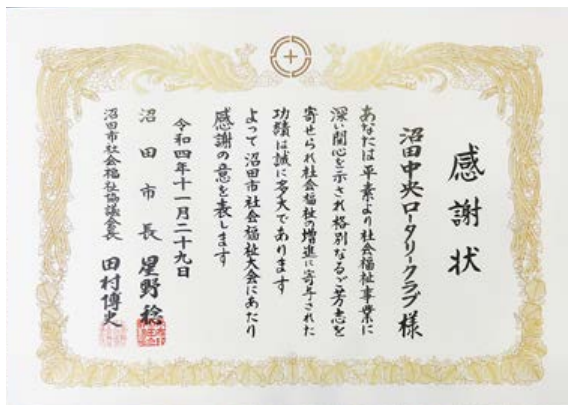 感謝状
沼田中央ロータリークラブ様
あなたは平素より社会福祉事業に
深い関心を示され格別なるご芳志を
寄せられ社会福祉の増進に寄与された
功績は誠に多大であります
よって沼田市社会福祉大会にあたり
感謝の意を表します
令和四年十一月二十九日
沼田市長 星野稔
沼田市社会福祉協議会長 田村博史